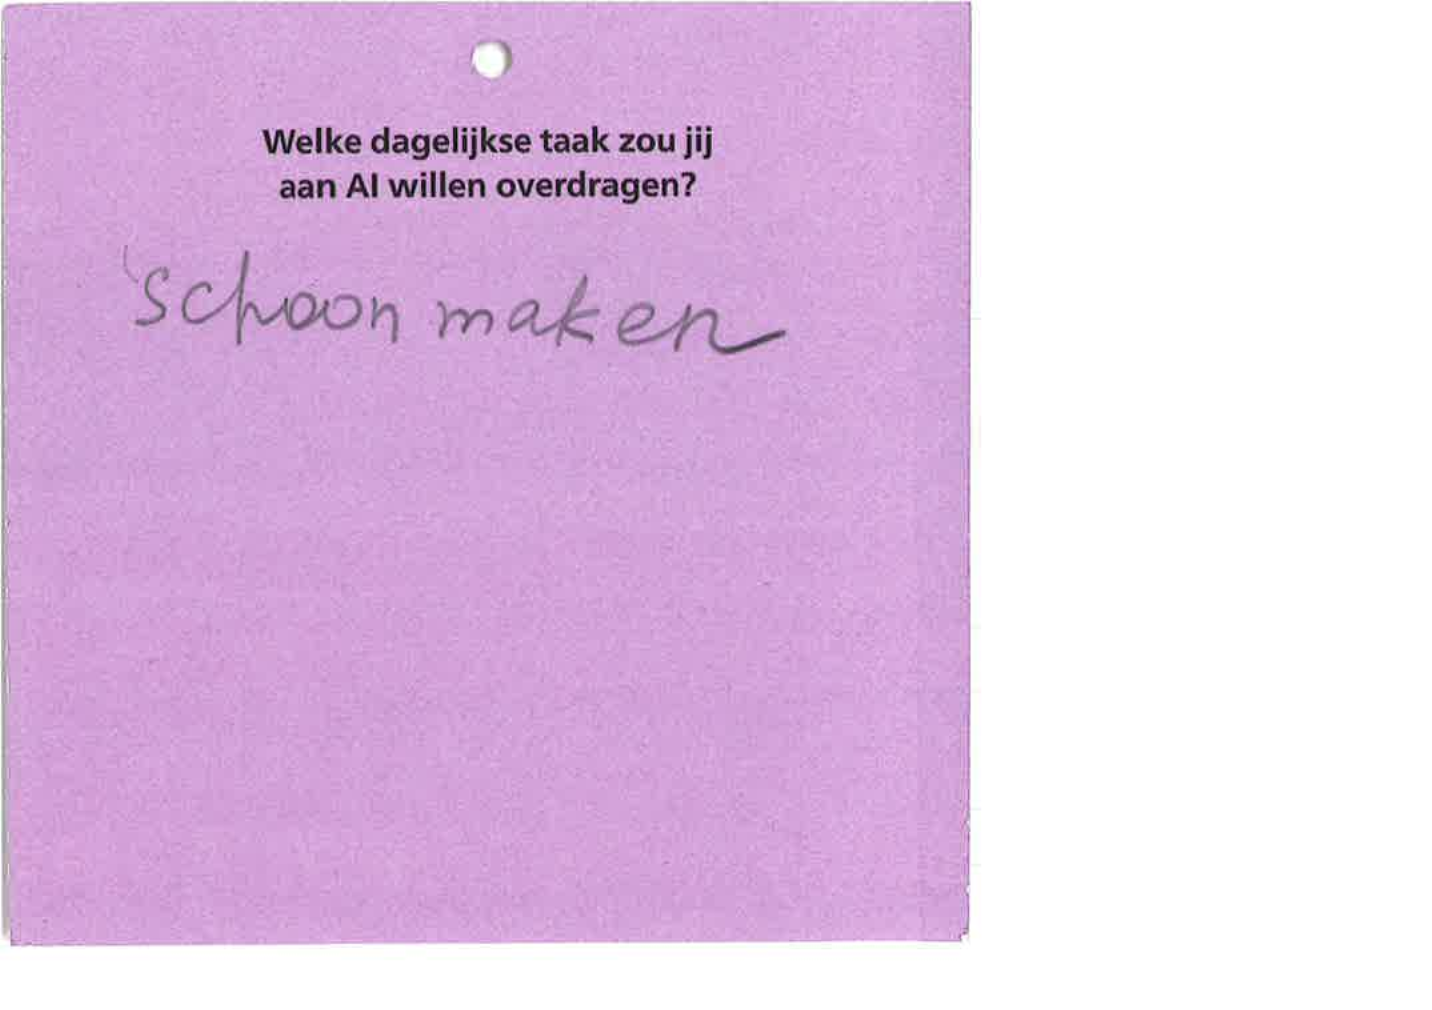 Welke dagelijkse taak zou jij
aan AI willen overdragen?
schoon maken